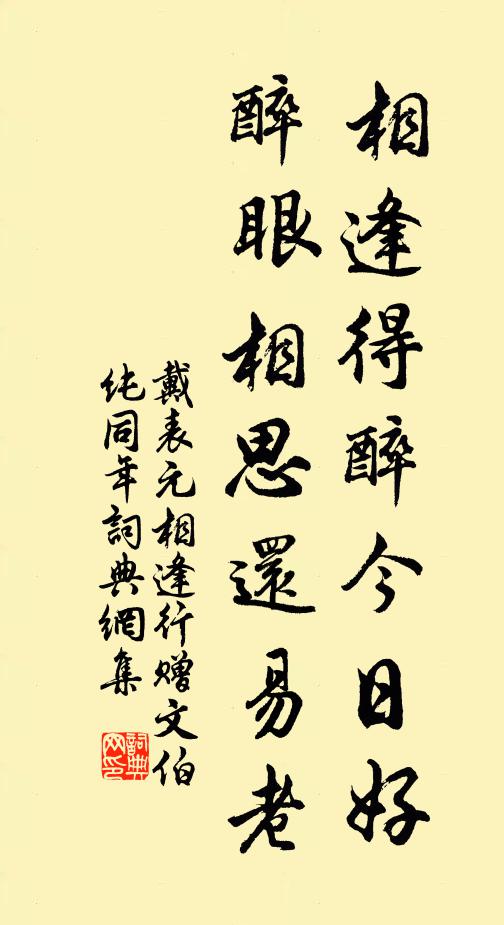 相逢得醉今日好
醉眼相思還易老
戴表元相逢行赠文伯
纯同年詞典網集
詞典
网印